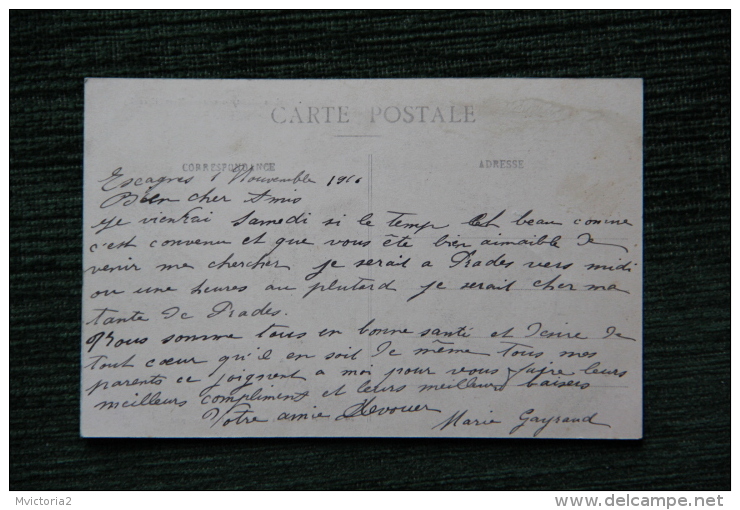 CARTE POSTALE
CORRESPONDANCE
ADRESSE
Escagres 1 Nouvembre
Bien cher Amis
Je viendrai Samedi si le temp est beau comme
c'est convenu et que vous ête bien aimaible de
venir me chercher je serait a Prades vers midi
ou une heures au plutard je serait cher ma
tante de Prades.
Nous somme tous en bonne santé et desire de
tout cœur qu'il en soit de même tous mes
parents ce joignent a moi pour vous faire leurs
meilleurs compliment et leurs meilleurs baisers
Votre amie devouer
Marie Gayraud
Mvictoria2
http://www.delcampe.net